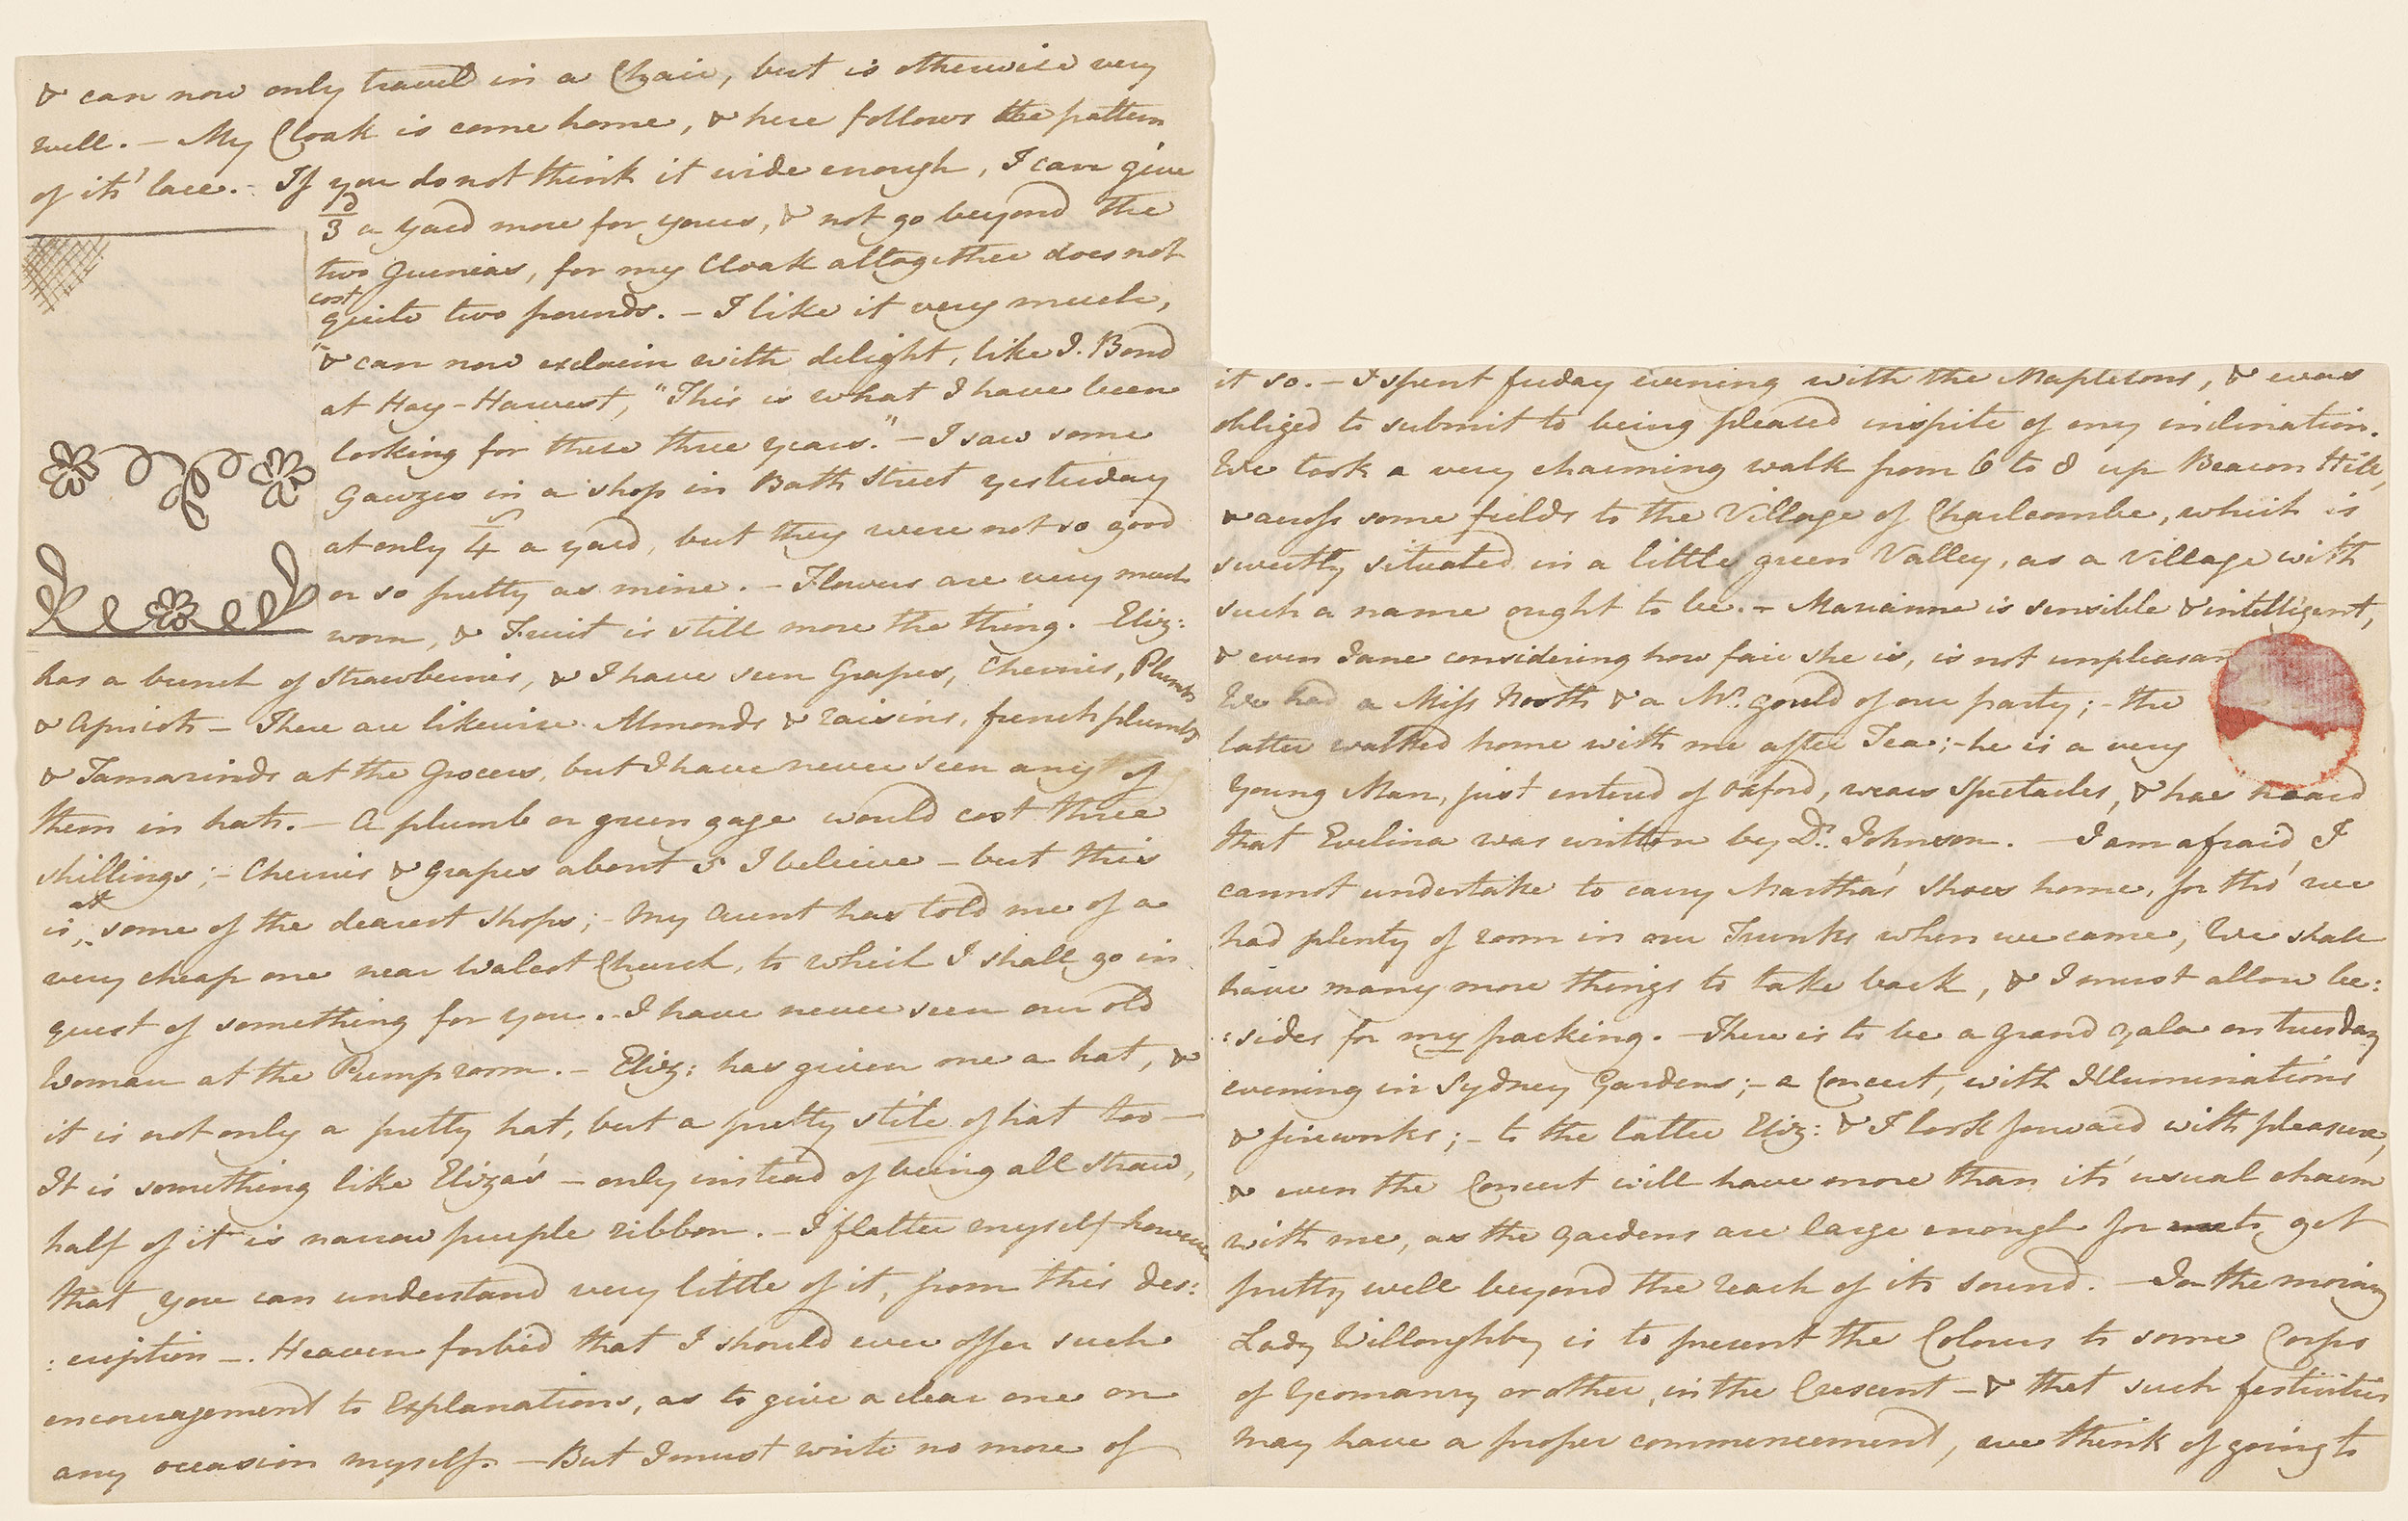 & can now only travel in a Chair, but is otherwise very
well. – My Cloak is come home, & here follows the pattern
of its' lace. – If you do not think it wide enough, I can give
3d a yard more for yours, & not go beyond the
two Guineas, for my Cloak altogether does not
cost
quite two pounds. – I like it very much,
& can now exclaim with delight, like J. Bond
at Hay-Harvest, "This is what I have been
looking for these three years." – I saw some
Gauzes in a shop in Bath Street yesterday
at only 4s a yard, but they were not so good
or so pretty as mine. – Flowers are very much
worn, & Fruit is still more the thing. – Eliz:
has a bunch of Strawberries, & I have seen Grapes, Cherries, Plumbs
& Apricots – There are likewise Almonds & raisins, french plumbs
& Tamarinds at the Grocers, but I have never seen any of
them in hats. – A plumb or green gage would cost three
shillings; – Cherries & Grapes about 5 I believe – but this
at
is some of the dearest Shops; – My Aunt has told me of a
very cheap one near Walcot Church, to which I shall go in
quest of something for you. – I have never seen an old
Woman at the Pump room. – Eliz: has given me a hat, &
it is not only a pretty hat, but a pretty stile of hat too –
It is something like Eliza's – only instead of being all straw,
half of it is narrow purple ribbon. – I flatter myself however
that you can understand very little of it, from this des:
:cription –. Heaven forbid that I should ever offer such
encouragement to Explanations, as to give a clear one on
any occasion myself. – But I must write no more of
it so. – I spent friday evening with the Mapletons, & was
obliged to submit to being pleased inspite of my inclination.
We took a very charming walk from 6 to 8 up Beacon Hill,
& across some fields to the Village of Charlcombe, which is
sweetly situated in a little green Valley, as a Village with
such a name ought to be. – Marianne is sensible & intelligent,
& even Jane considering how fair she is, is not unpleasan
We had a Miss North & a Mr. Gould of our party; – the
latter walked home with me after Tea; – he is a very
Young Man, just entered of Oxford, wears Spectacles, & has heard
that Evelina was written by Dr. Johnson. – I am afraid I
cannot undertake to carry Martha's Shoes home, for tho' we
had plenty of room in our Trunks when we came, We shall
have many more things to take back, & I must allow be:
:sides for my packing. – There is to be a grand gala on tuesday
evening in Sydney Gardens; – a Concert, with Illuminations
& fireworks; – to the latter Eliz: & I look forward with pleasure,
& even the Concert will have more than its' usual charm
with me, as the gardens are large enough for me to get
pretty well beyond the reach of its sound. – In the morning
Lady Willoughby is to present the Colours to some Corps
of Yeomanry or other, in the Crescent – & that such festivities
may have a proper commencement, we think of going to